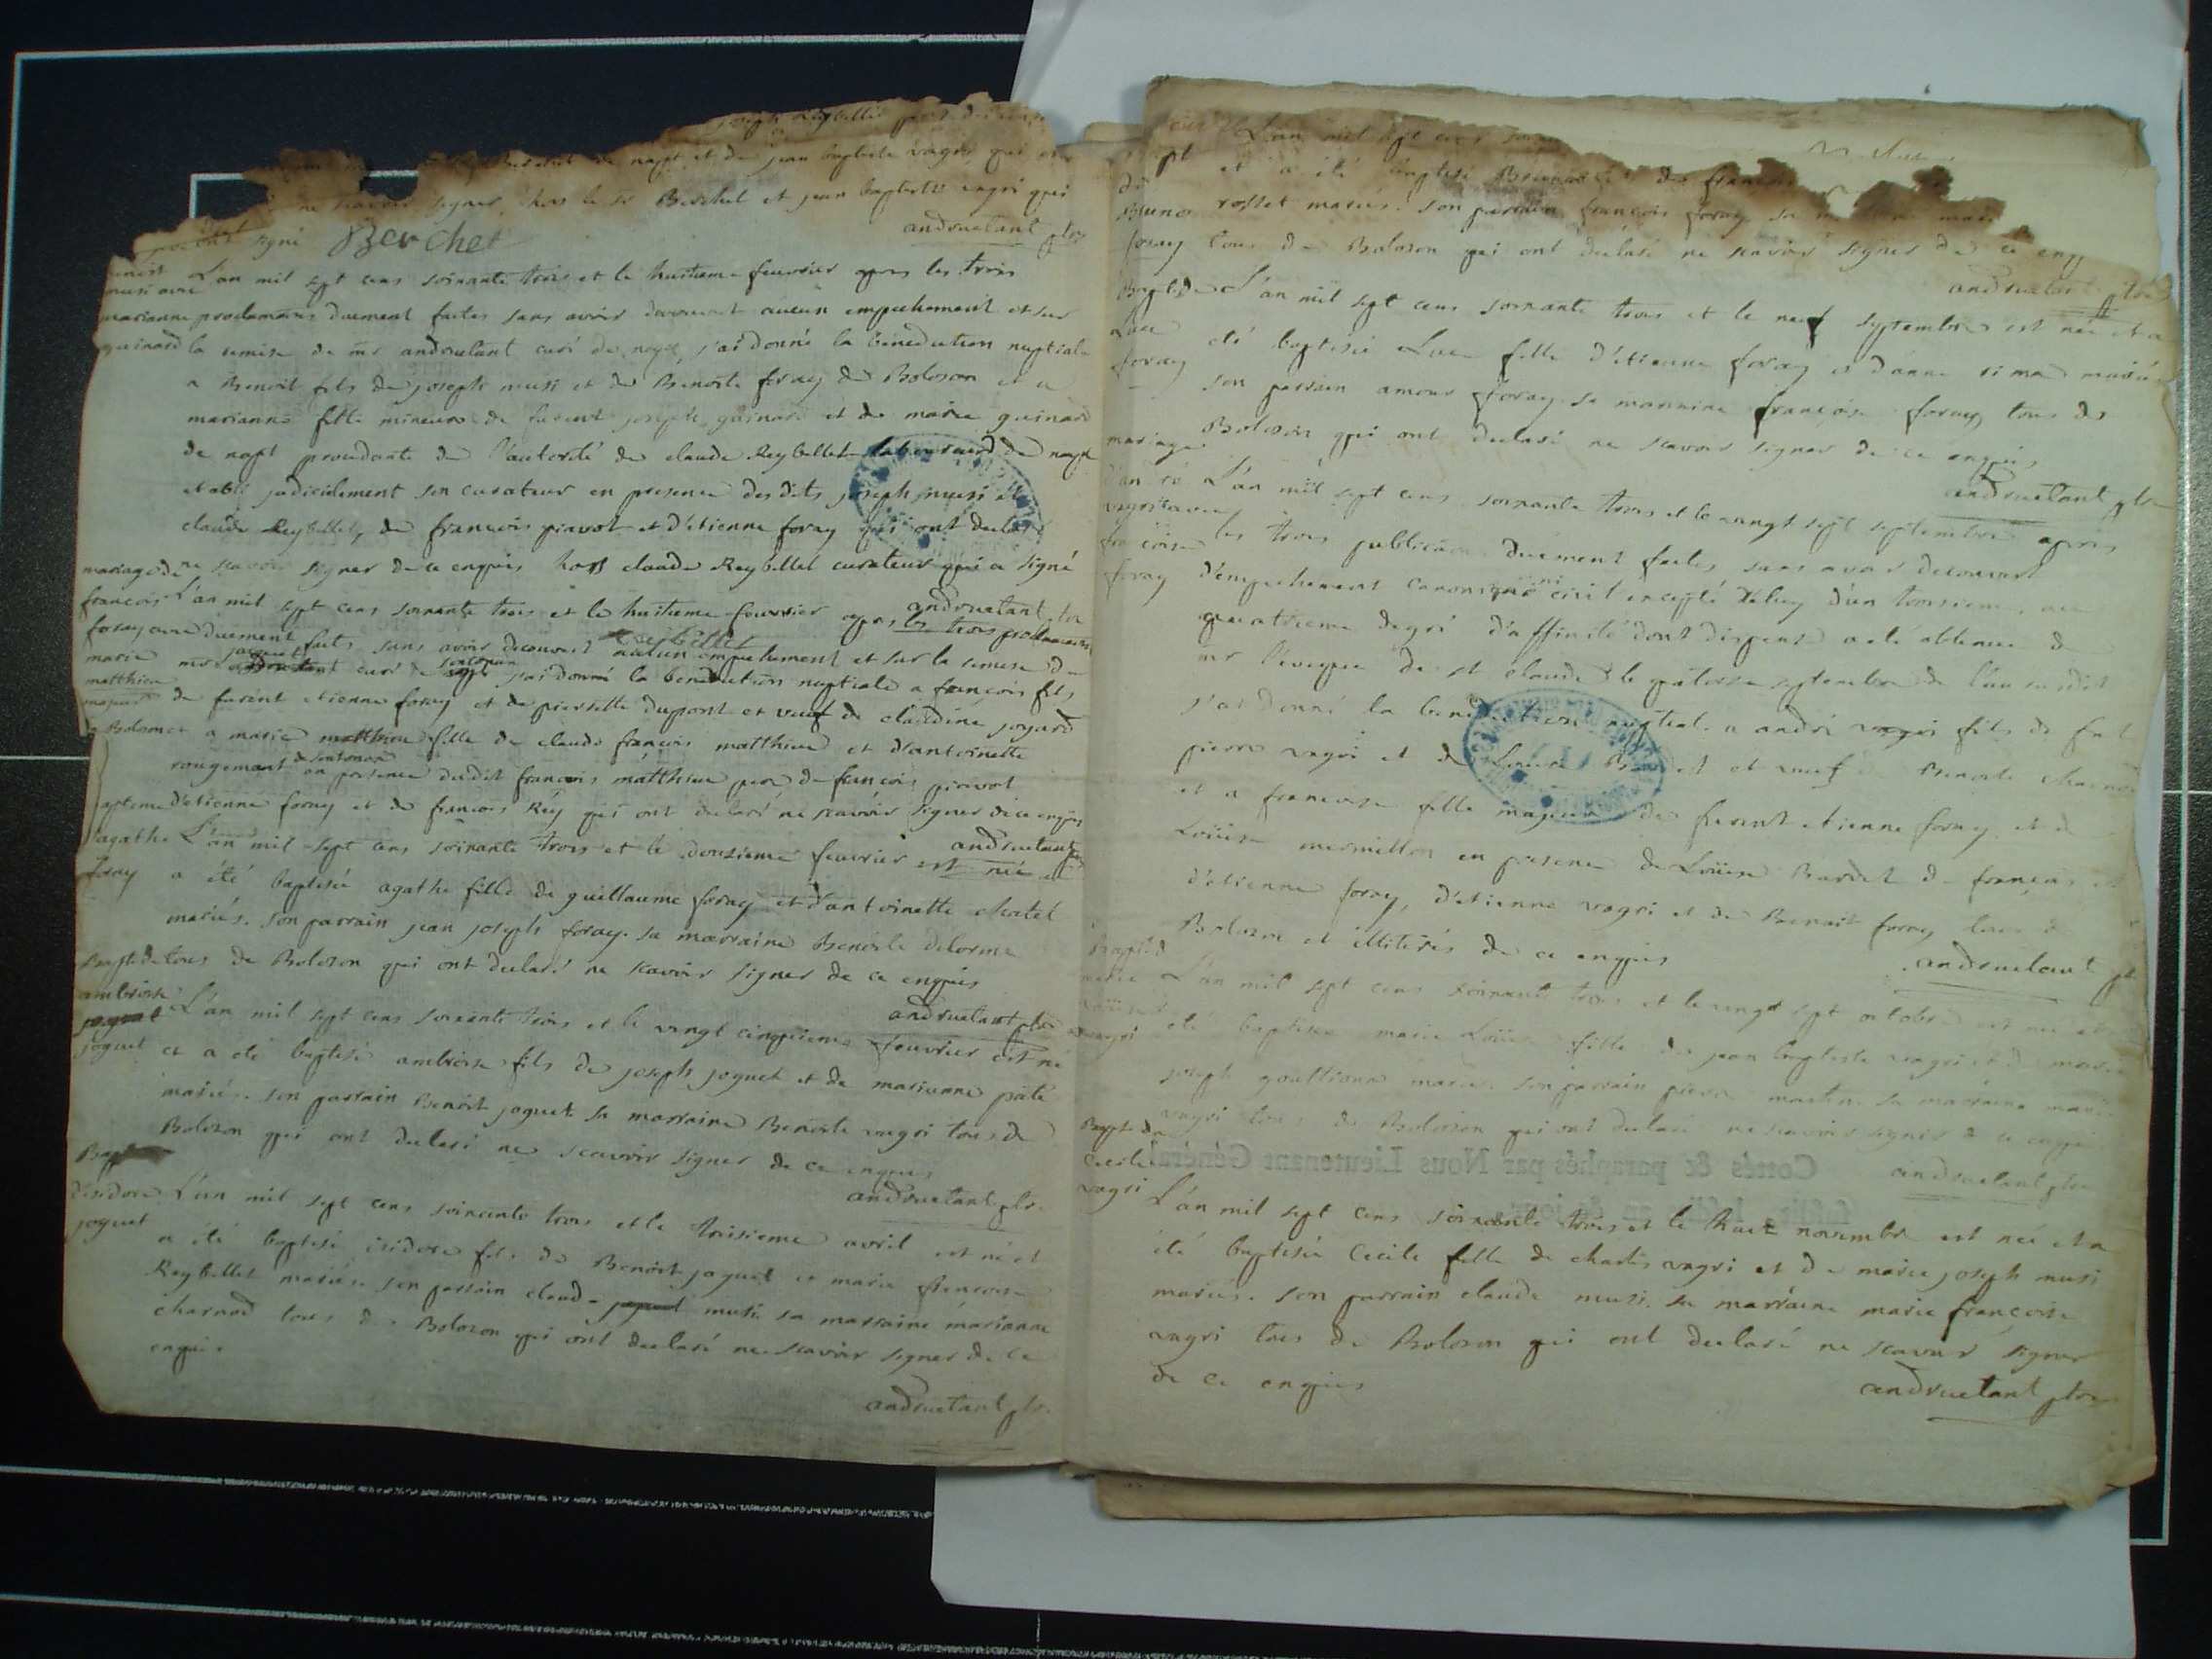 joseph Reybellet
de napt et de jean baptiste vagri qui
ne scavoir signer, hors le sr Berchet et jean baptiste vagri qui
signé Berchet andruetant ptre
L'an mil sept cens soixante trois et le huitieme feuvrier apres les trois
musi avec
marianne proclamations duement faites sans avoir decouvert aucun empechement et sur
guinard la remise de mr andruetant curé de napt, j'ai donné la benediction nuptiale
a Benoit fils de joseph musi et de Benoite foray de Bolozon et a
marianne fille mineure de furent joseph guinard et de marie guinard
de napt procedante de l'autorité de claude Reybellet laboureur de napt
etabli judicielement son curateur en presence des dits joseph musi et
claude Reybellet, de françois pravot et d'etienne foray qui ont declaré
ne scavoir signer de ce enquis hors claude Reybellet curateur qui a signé
andruetant ptre
Reybellet
mariage de
françois L'an mil sept cens soixante trois et le huitieme feuvrier apres les trois proclamations
foray avec duement faites sans avoir decouvert aucun empechement et sur la remise de
marie mr joguet curé de sontonax j'ai donné la benediction nuptiale a françois fils
matthieu
majeur de furent etienne foray et de pierrette dupont et veuf de claudine joyard
de Bolozon et a marie matthieu fille de claude françois matthieu et d'antoinette
rougemont de sontonax en presence dudit françois matthieu pere de françois pravot
d'etienne foray et de françois Rey qui ont declaré ne scavoir signer de ce enquis
andruetant ptre
bapteme
d'agathe L'an mil sept cens soixante trois et le douzieme feuvrier est née et
foray a été baptisée agathe fille de guillaume foray et d'antoinette chatel
mariés. son parrain jean joseph foray. sa marraine Benoite delorme
tous de Bolozon qui ont declaré ne scavoir signer de ce enquis
andruetant ptre
Bapt. de
ambroise
joguet L'an mil sept cens soixante trois et le vingt cinquieme feuvrier est né
joguet et a été baptisé ambroise fils de joseph joguet et de marianne paté
mariés. son parrain Benoit joguet. sa marraine Benoite vagri tous de
Bolozon qui ont declaré ne scavoir signer de ce enquis
andruetant ptre
Bapt
d'isidore L'an mil sept cens soixante trois et le troisieme avril est né et
joguet a été baptisé isidore fils de Benoit joguet et marie françoise
Reybellet mariés. son parrain claude musi. sa marraine marianne
charnod tous de Bolozon qui ont declaré ne scavoir signer de ce
enquis
andruetant ptre
L'an mil sept cens
Bapt et a été baptisé Bruno de françois
de
Bruno rosset mariés. son parrain françois foray sa
foray tous de Bolozon qui ont declaré ne scavoir signer de ce enq
andruetant ptre
Bapt. de L'an mil sept cens soixante trois et le neuf septembre est née et a
Luce été baptisée Luce fille d'etienne foray et d'anne mariés
foray son parrain amour foray. sa marraine françoise foray, tous de
Bolozon qui ont declaré ne scavoir signer de ce enquis
andruetant ptre
mariage
d'andré L'an mil sept cens soixante trois et le vingt sept septembre apres
vagri avec les trois publications duement faites, sans avoir decouvert
françoise
foray d'empechement canonique ni civil excepté celuy d'un troisieme au
quatrieme degré d'affinité dont dispense a été obtenue de
mr l'eveque de st claude le quatorze septembre de l'an susdit
j'ai donné la benediction nuptiale a andré vagri fils de fut
pierre vagri et de Louise et veuf de Benoite charnod
et a françoise fille majeure de furent etienne foray et de
Loüise mermillon en presence de Loüise Bardet de françois et
d'etienne foray, d'etienne vagri et de Benoit foray tous de
Bolozon et illiterés de ce enquis
andruetant ptre
Bapt. de
marie L'an mil sept cens soixante trois et le vingt sept octobre est née et a
Loüise
vagri été baptisée marie Loüise fille de jean baptiste vagri et de marie
joseph gouttione mariés. son parrain pierre martin. sa marraine marie
vagri tous de Bolozon qui ont declaré ne scavoir signer de ce enquis
andruetant ptre
Cottés & paraphés par Nous Lieutenant Général
Bapt. de
Cecile
vagri L'an mil sept cens soixante trois et le huit novembre est née et a
été baptisée Cecile fille de charles vagri et de marie joseph musi
mariés. son parrain claude musi. sa marraine marie françoise
vagri tous de Bolozon qui ont declaré ne scavoir signer
de ce enquis
andruetant ptre